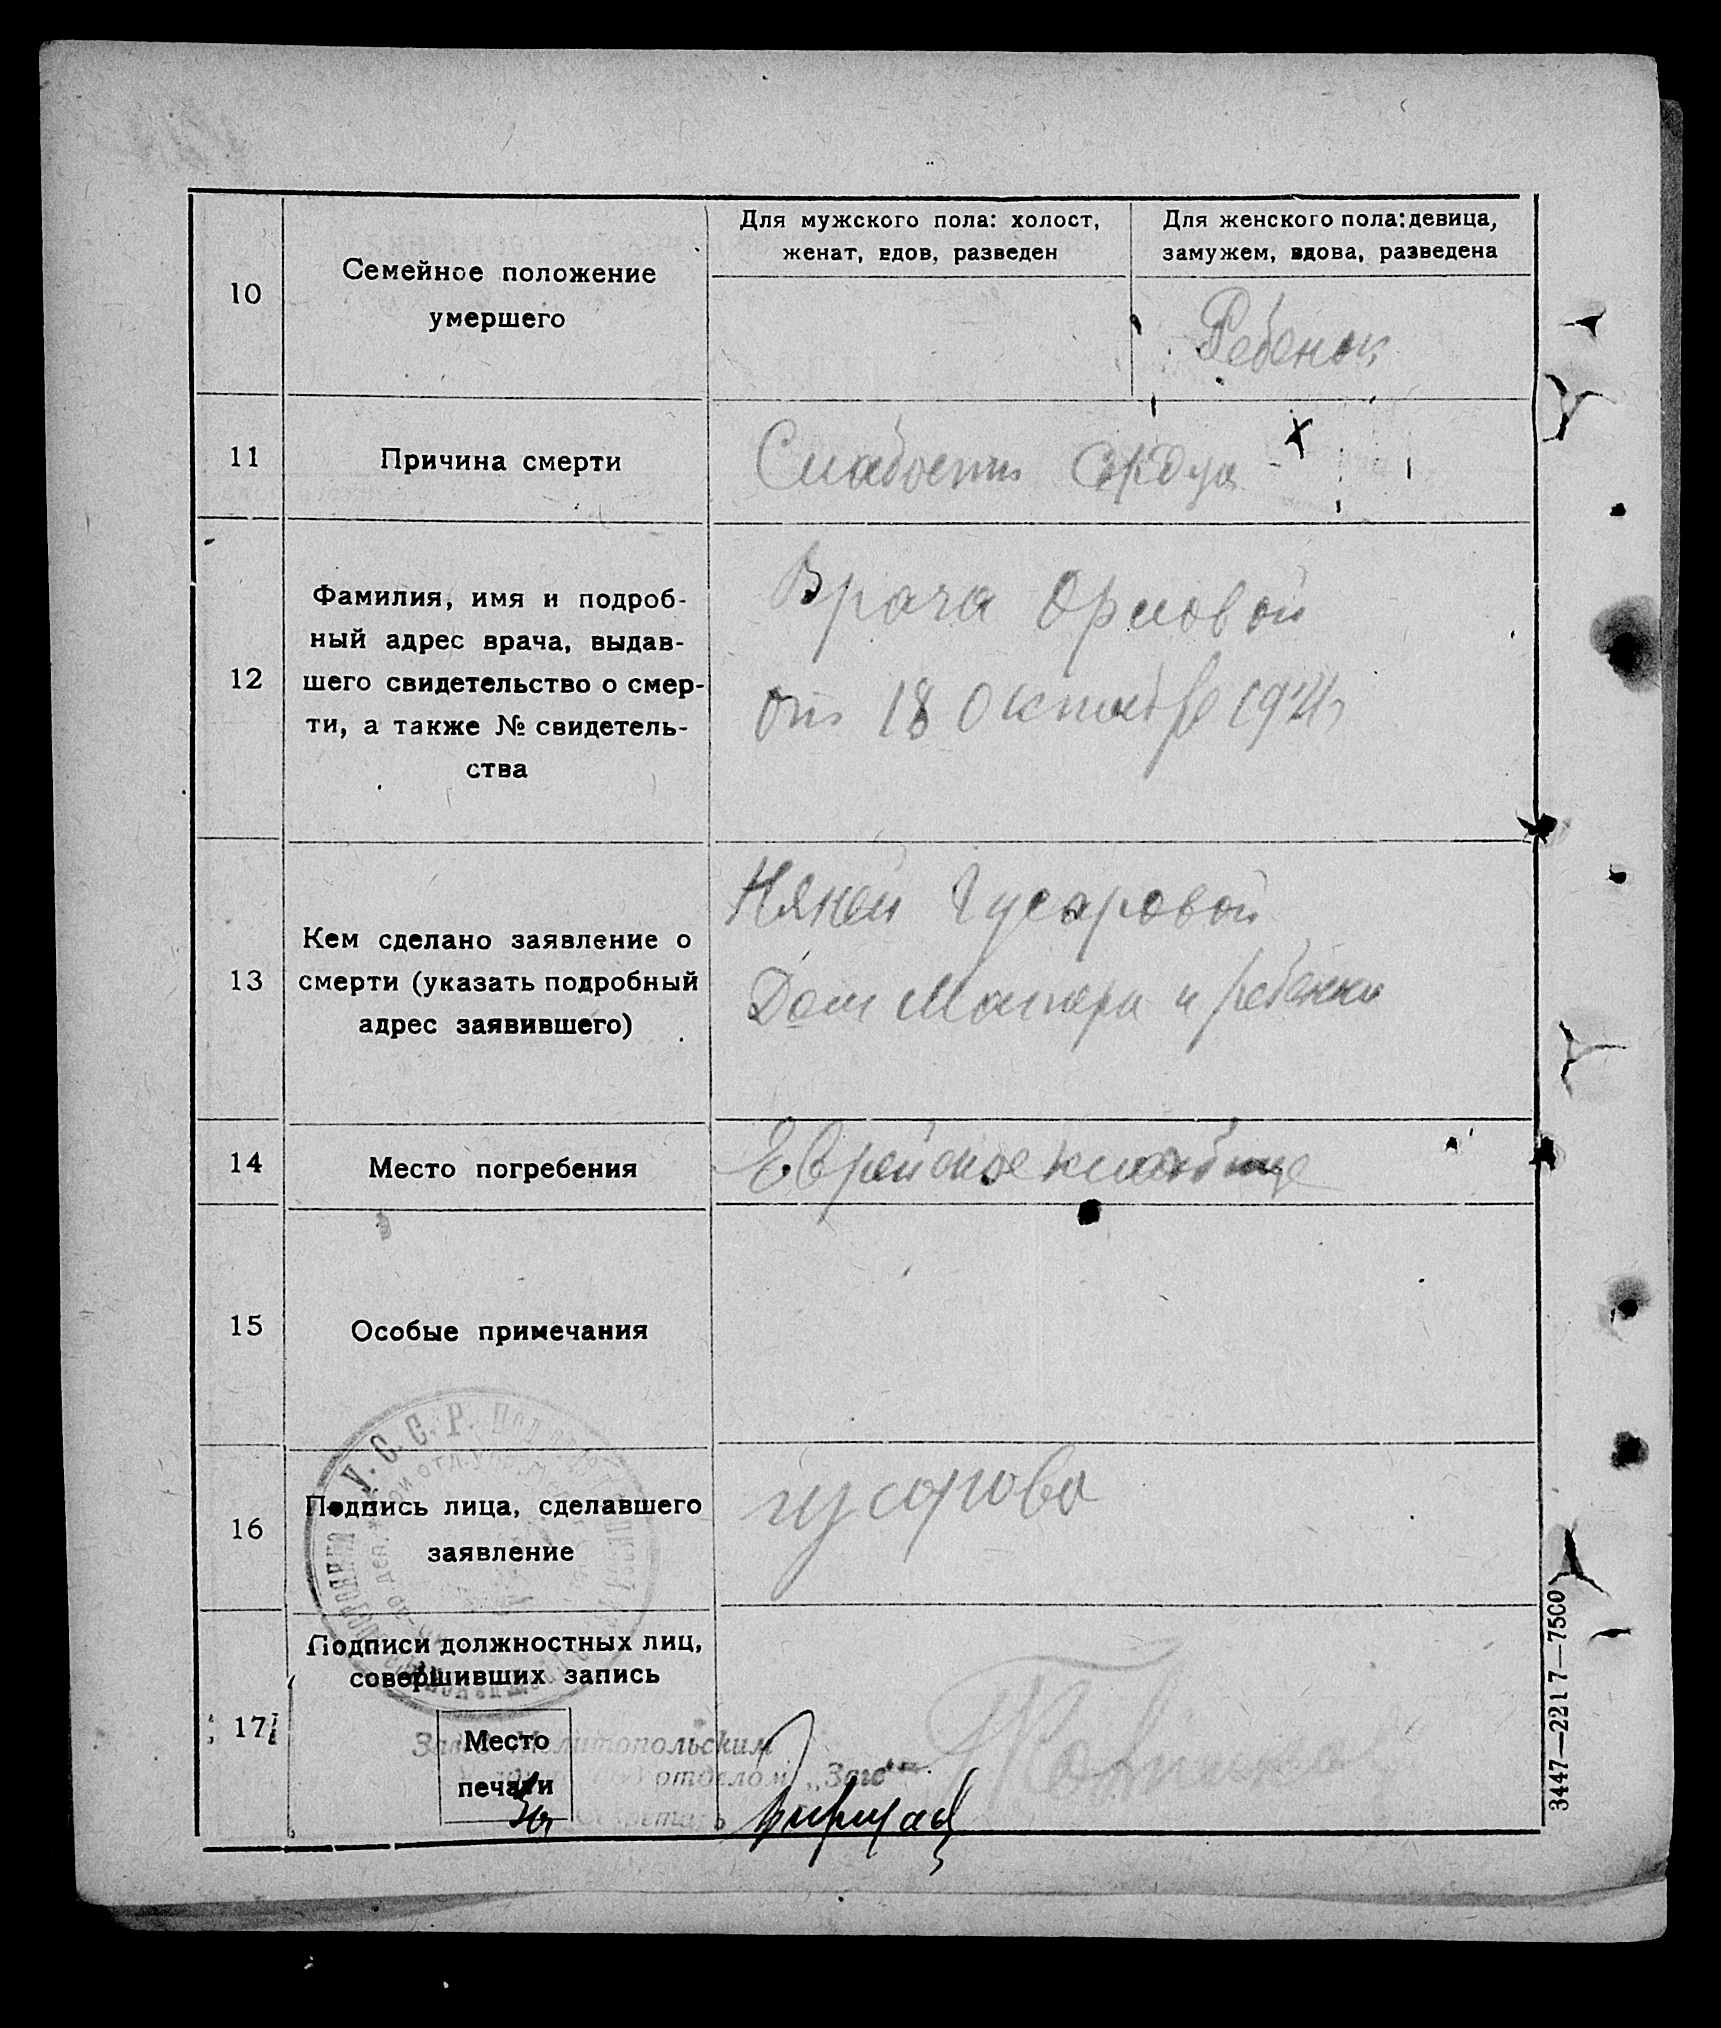 10
Семейное положение
умершего
Для мужского пола: холост,
женат, вдов, разведен
Для женского пола: девица,
замужем, вдова, разведена
Ребенок
11
Причина смерти
Слабость сердца
12
Фамилия, имя и подроб-
ный адрес врача, выдав-
шего свидетельство о смер-
ти, а также № свидетель-
ства
Врача Орловой
от 18 октября
13
Кем сделано заявление о
смерти (указать подробный
адрес заявившего)
Няней Гусаровой
Дом Матери и ребенка
14
Место погребения
Еврейское кладбище
15
Особые примечания
16
Подпись лица, сделавшего
заявление
гусарова
17
Подписи должностных лиц,
совершивших запись
Место
печати
У. С. С. Р.
Мелитопольским
отделом „Загс"
3447—2217—7500